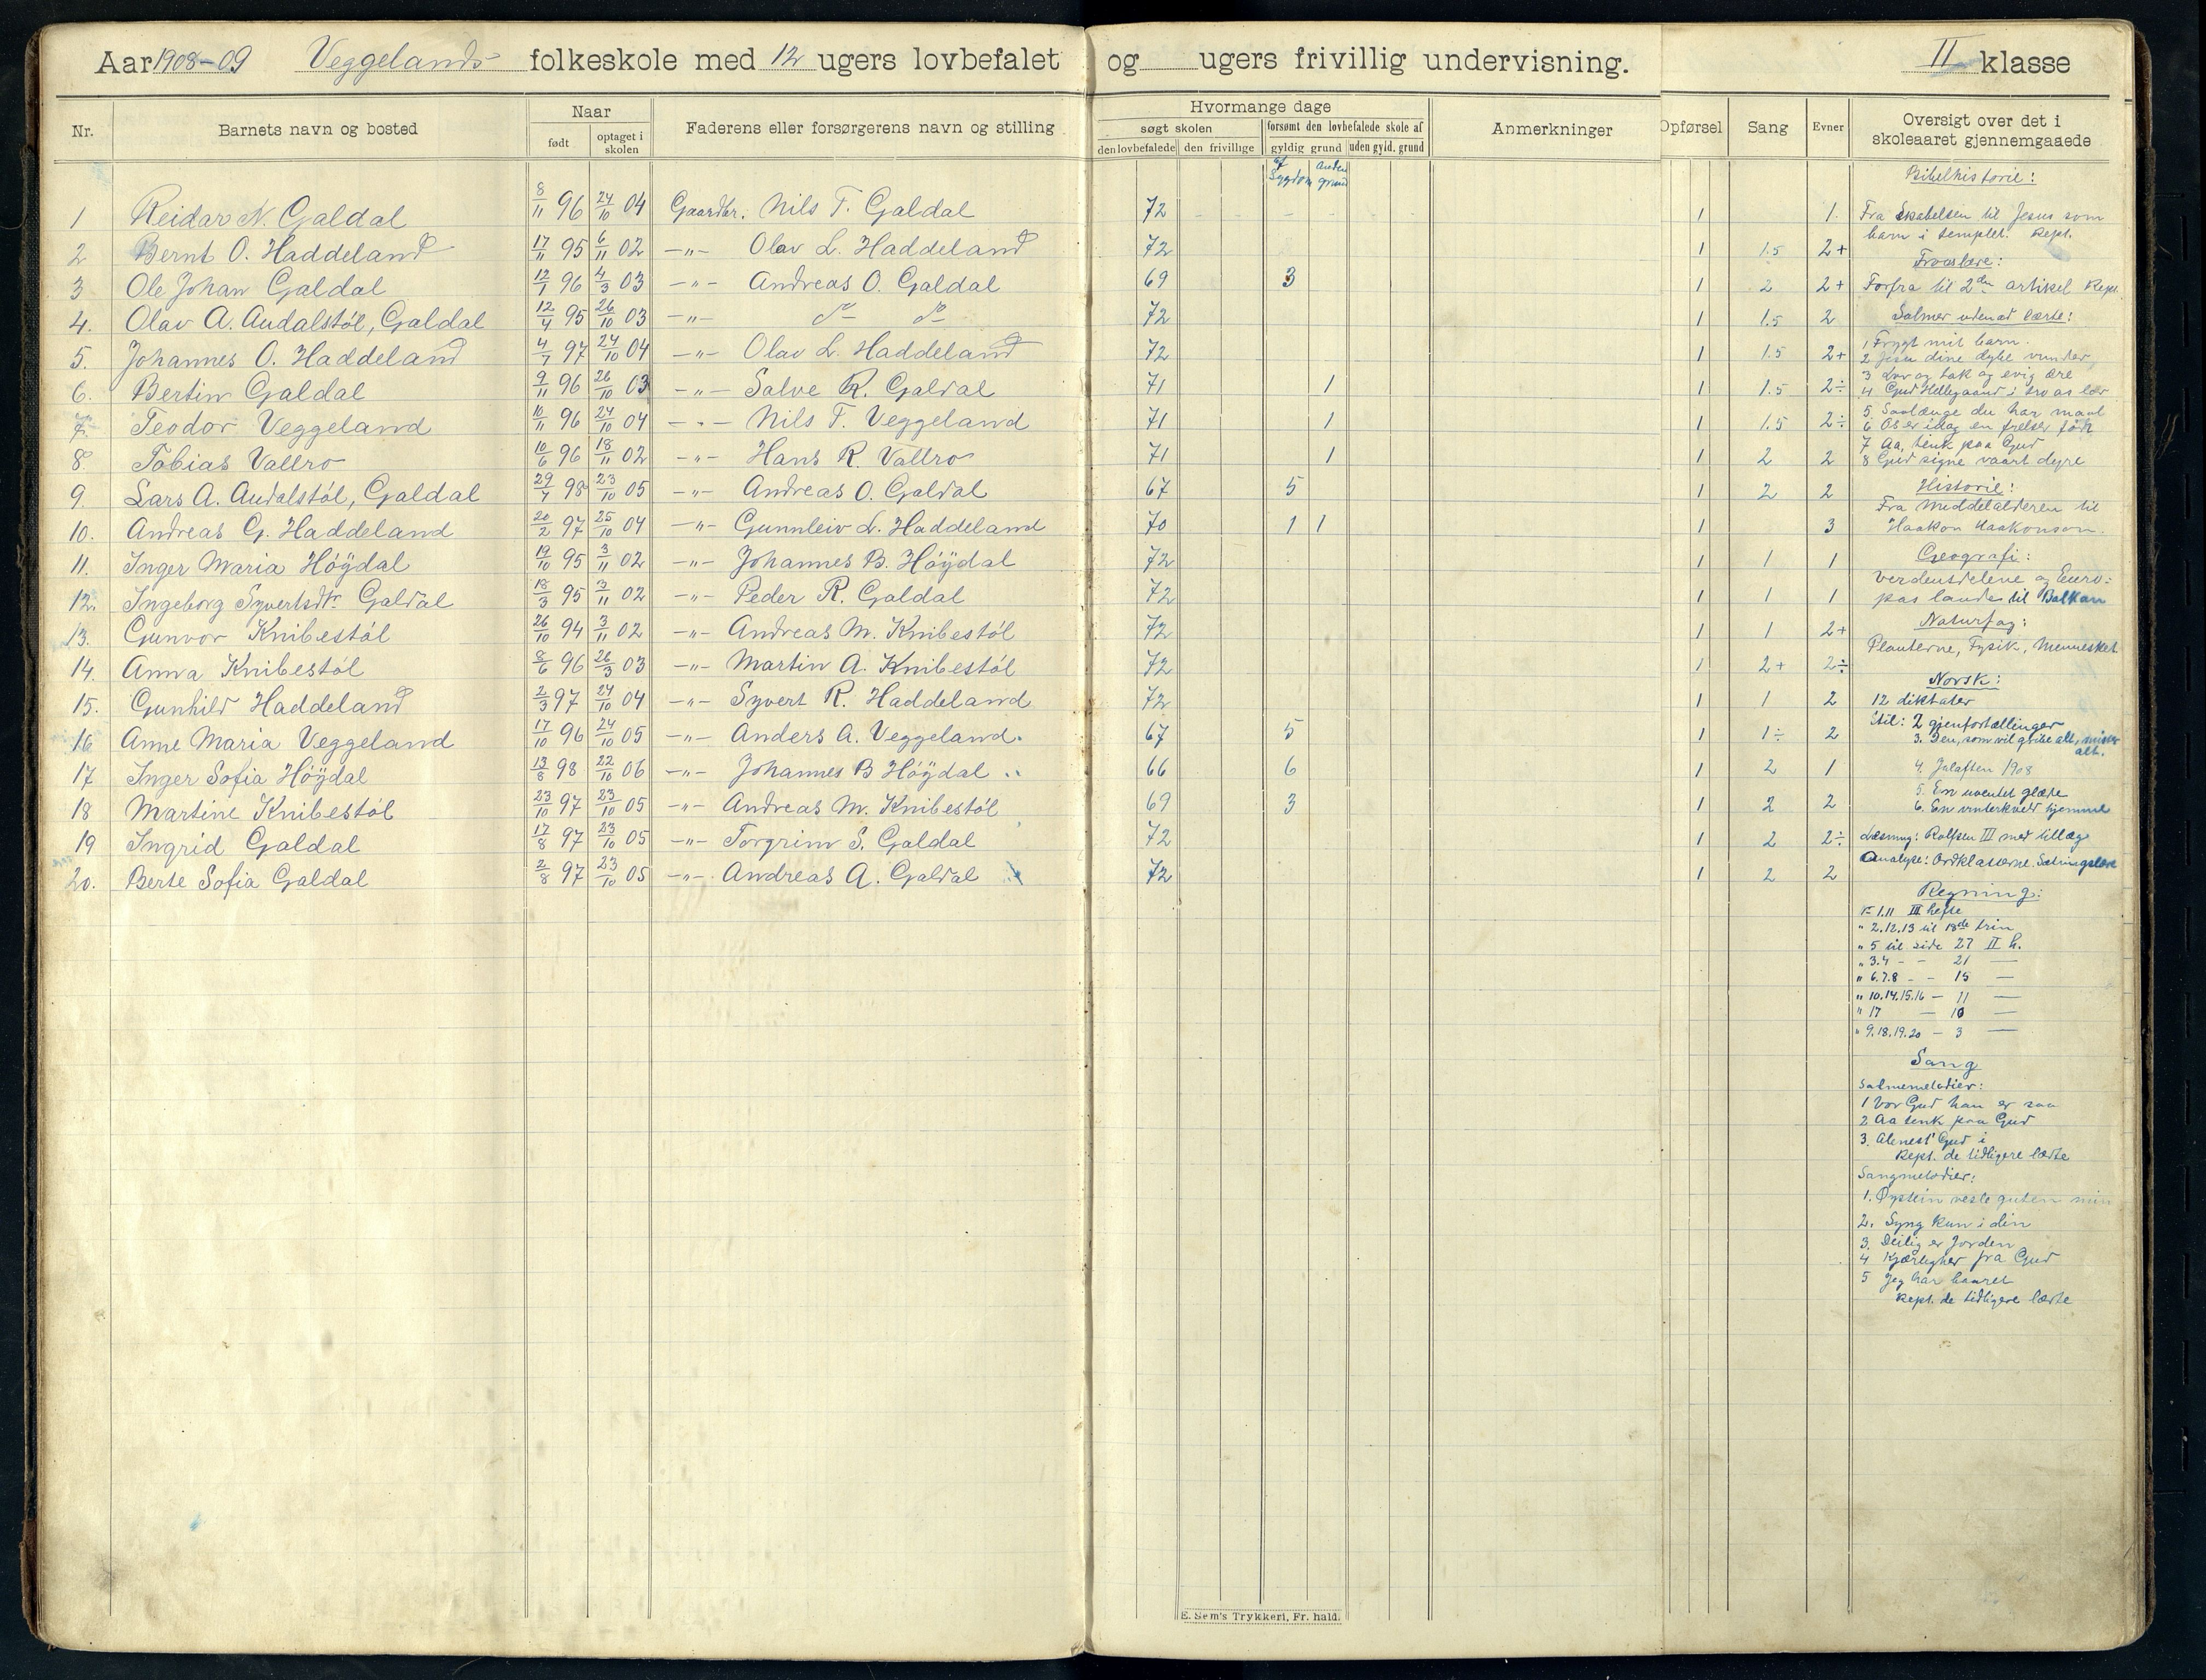 Aar 1908-09 Veggelands folkeskole med 12 ugers lovbefalet og ugers frivillig undervisning. II klasse
Nr. Barnets navn og bosted Naar født optaget i skolen Faderens eller forsørgerens navn og stilling Hvormange dage søgt skolen den lovbefalede den frivillige forsømt den lovbefalede skole af gyldig grund uden gyld. grund Anmerkninger Opførsel Sang Evner Oversigt over det i skoleaaret gjennemgaaede
af Sygdom anden grund
1 Reidar N. Galdal 8/11 96 24/10 04 Gaardbr. Nils T. Galdal 72 - - - - 1 1.
2 Bernt O. Haddeland 17/11 95 6/11 02 -"- Olav L. Haddeland 72 1 1.5 2+
3 Ole Johan Galdal 12/1 96 4/3 03 -"- Andreas O. Galdal 69 3 1 2 2+
4. Olav A. Audalstöl, Galdal 12/4 95 26/10 03 -"- do do 72 1 1.5 2
5. Johannes O. Haddeland 4/7 97 24/10 04 -"- Olav L. Haddeland 72 1 1.5 2+
6. Bertin Galdal 9/11 96 26/10 03 -"- Salve R. Galdal 71 1 1 1.5 2÷
7. Teodor Veggeland 10/11 96 24/10 04 -"- Nils T. Veggeland 71 1 1 1.5 2÷
8. Tobias Vallro 10/6 96 18/11 02 -"- Hans R. Vallro 71 1 1 2 2
9. Lars A. Audalstöl, Galdal 29/7 98 23/10 05 -"- Andreas O. Galdal 67 5 1 2 2
10. Andreas G. Haddeland 20/2 97 25/10 04 -"- Gunnleiv L. Haddeland 70 1 1 1 3
11. Inger Maria Höÿdal 19/10 95 3/11 02 -"- Johannes B. Höÿdal 72 1 1 1
12. Ingeborg Syvertsdtr Galdal 18/3 95 3/11 02 -"- Peder R. Galdal 72 1 1 1
13. Gunvor Knibestöl 26/10 94 3/11 02 -"- Andreas M. Knibestöl 72 1 1 2+
14. Anna Knibestöl 8/6 96 26/3 03 -"- Martin A. Knibestöl 72 1 2+ 2÷
15. Gunhild Haddeland 2/3 97 24/10 04 -"- Syvert R. Haddeland 72 1 1 2
16 Anne Maria Veggeland 17/10 96 24/10 05 -"- Anders A. Veggeland. 67 5 1 1÷ 2
17 Inger Sofia Höÿdal 13/8 98 22/10 06 -"- Johannes B Höÿdal 66 6 1 2 1
18 Martine Knibestöl 23/10 97 23/10 05 -"- Andreas M. Knibestöl 69 3 1 2 2
19 Ingrid Galdal 17/8 97 23/10 05 -"- Torgrim S. Galdal 72 1 2 2÷
20. Berte Sofia Galdal 2/8 97 23/10 05 -"- Andreas A. Galdal 72 1 2 2
Bibelhistorie:
Fra Skabelsen til Jesus som
barn i templet. Rept.
Troslære:
Forfra til 2den artikel Rept.
Salmer udenad lærte:
1 Frygt mit barn.
2 Jesu dine dybe vunder
3 Lov og tak og evig ære
4 Gud Helligaand i tro os lær
5. Saalænge du har maal
6 Os er idag en frelser född
7 Aa, tenk paa Gud
8 Gud signe vaart dyre
Historie:
Fra Middelalderen til
Haakon Haakonson.
Geografi:
Verdensdelene og Euro:
pas lande til Balkan
Naturfag:
Planterne, Fysik, Mennesket
Norsk:
12 diktater
Stil: 2 gjenfortællinger
3. Den, som vil gribe alt, mister
alt.
4. Julaften 1908
5. En uventet glæde
6. En vinterkveld hjemme
Læsning: Rolfsen III med tillæg
Analyse: Ordklasserne. Sætningslære
Regning:
No 1.11 III hefte
" 2.12.13 til 18de trin
" 5 til side 27 II h.
" 3.4 - - 21 —
" 6.7.8 - - 15 —
" 10.14.15.16 - 11 —
" 17 — 10 —
" 9.18.19.20 - 3 —
Sang
Salmemelodier:
1 Vor Gud han er saa
2 Aa tenk paa Gud
3. Alenest Gud i
Rept. de tidligere lærte
Sangmelodier:
1. Øystein vesle guten min
2. Syng kun i din
3. Deilig er Jorden
4 Kjærlighet fra Gud
5 Jeg har baaret
Rept. de tidligere lærte
E. Sem's Trykkeri, Fr. hald.